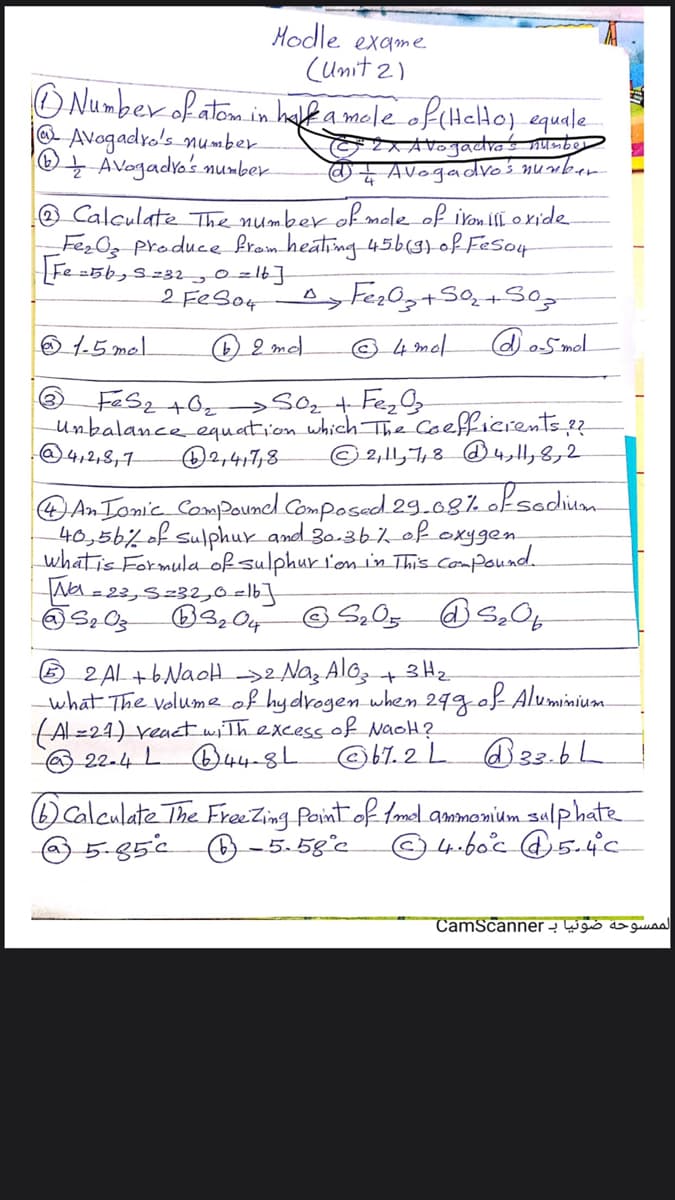 Modle exame
(Unit 2)
① Number of atom in half a mole of (HcHo) equale
ⓐ Avogadro's number ⓒ 2x Avogadro's number
ⓑ 1/2 Avogadro's number ⓓ 1/4 Avogadro's number
② Calculate The number of mole of iron III oxide
Fe₂O₃ produce from heating 456(g) of FeSO₄
[Fe=56, S=32, O=16]
2 FeSO₄ —Δ→ Fe₂O₃ + SO₂ + SO₃
ⓐ 1.5 mol ⓑ 2 mol ⓒ 4 mol ⓓ 0.5 mol
③ FeS₂ + O₂ → SO₂ + Fe₂O₃
Unbalance equation which The Coefficients ??
ⓐ 4,2,8,7 ⓑ 2,4,7,8 ⓒ 2,11,7,8 ⓓ 4,11,8,2
④ An Ionic Compound Composed 29.08% of sodium
40,56% of sulphur and 30.36% of oxygen
what is Formula of sulphur ion in This Compound.
[Na=23, S=32, O=16]
ⓐ S₂O₃ ⓑ S₂O₄ ⓒ S₂O₅ ⓓ S₂O₆
⑤ 2Al + 6NaOH → 2Na₃AlO₃ + 3H₂
what The Volume of hydrogen when 27g of Aluminium
(Al=27) react with excess of NaOH?
ⓐ 22.4 L ⓑ 44.8L ⓒ 67.2 L ⓓ 33.6 L
⑥ Calculate The FreeZing Point of 1mol ammonium sulphate
ⓐ 5.85°c ⓑ -5.58°c ⓒ 4.60°c ⓓ 5.4°c
الممسوحة ضوئيا بـ CamScanner